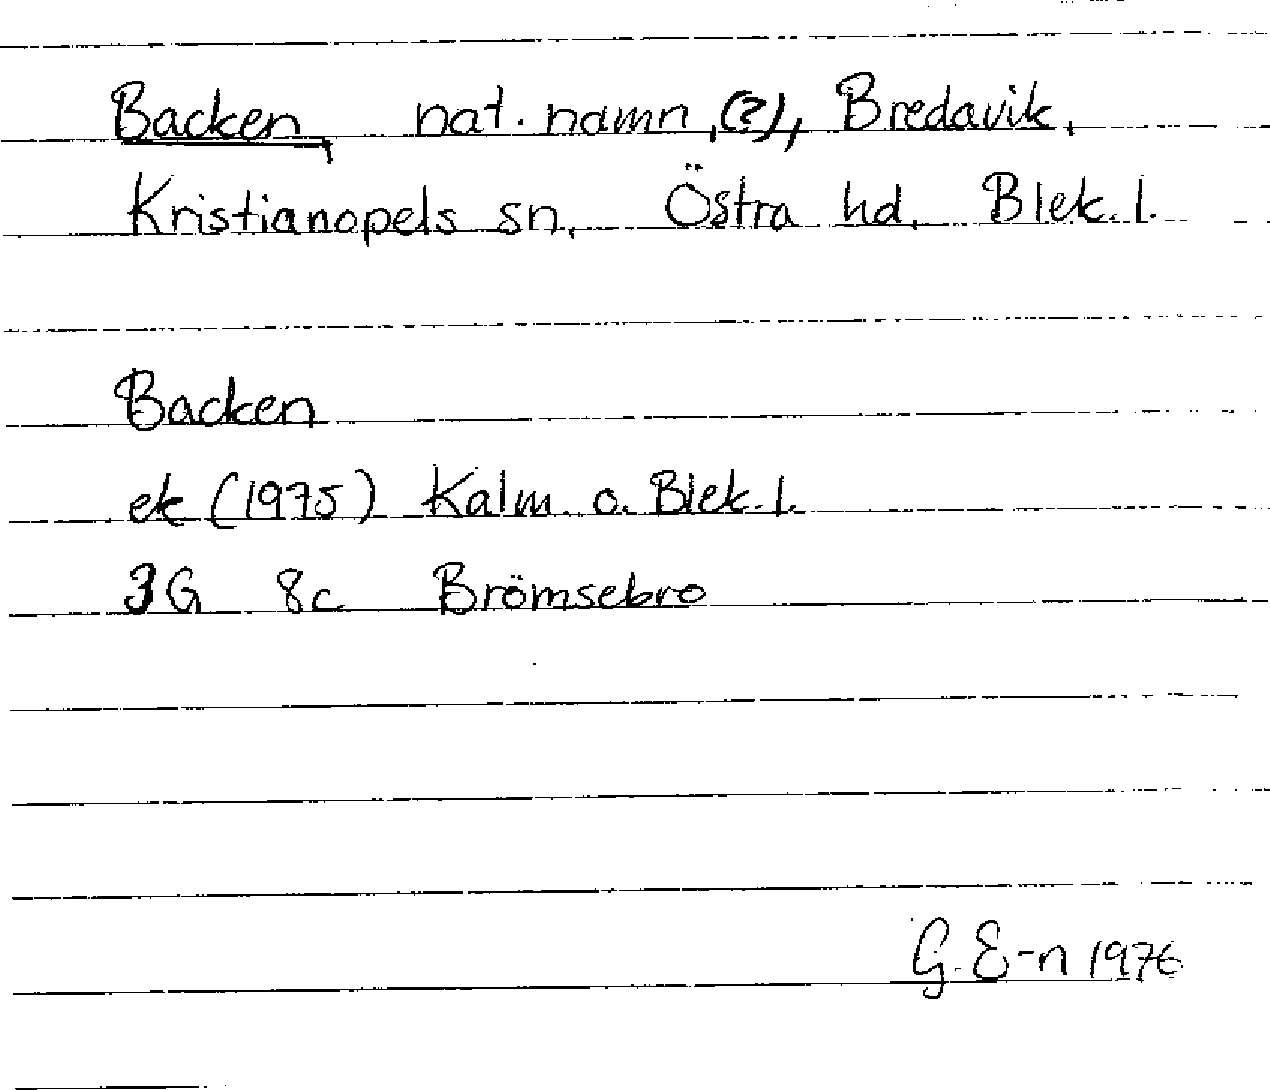 Backen, nat. namn, (?), Bredavik,
Kristianopels sn, Östra hd, Blek. l.
Backen
ek (1975) Kalm. o. Blek. l.
3G 8c Brömsebro
G. E-n 1976